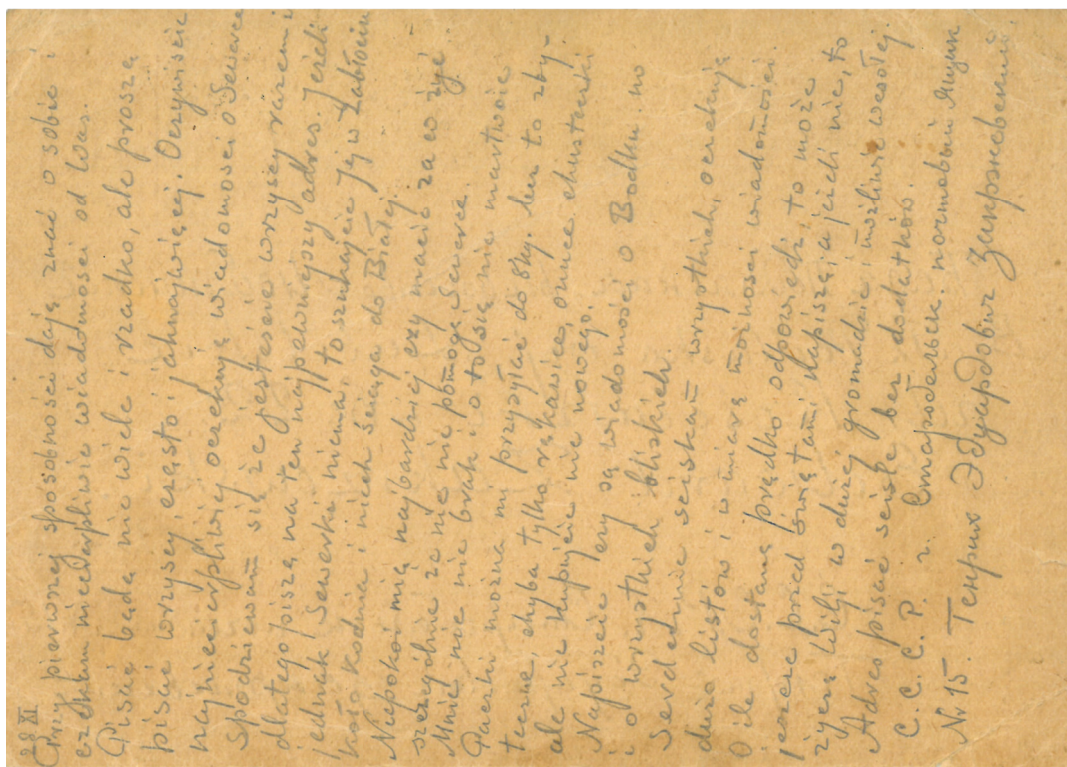 28 XI
Przy pierwszej sposobności daję znać o sobie i
czekam niecierpliwie wiadomości od Was.
Pisać będą nie wiele i rzadko, ale proszę
pisać wszyscy, często i jaknajwięcej. Oczywiście
najniecierpliwiej oczekuję wiadomości o Sewerce
Spodziewam się że jesteście wszyscy razem i
dlatego piszę na ten najpewniejszy adres. Jeżeli
jednak Sewerki niema, to szukajcie Jej w Zabłociu
koło Kodnia i niech ściąga do Białej.
Niepokoi mię najbardziej czy macie za co żyć
szczególnie że nic nie pomogę Sewerce.
Mnie nic nie brak i o to się nie martwcie
Paczki można mi przysyłać do 8kg. lecz to zby-
teczne, chyba tylko rękawice, onuce, chusteczki
ale nie kupujcie nic nowego.
Napiszcie czy są wiadomości o Bodku no
i o wszystkich bliskich.
Serdecznie ściskam wszystkich, oczekuję
dużo listów i w miarę możności wiadomości.
O ile dostanę prędko odpowiedź to może
jeszcze przed świętami napiszę, a jeżeli nie, to
życzę Wilji w dużej gromadzie i możliwie wesołej.
Adres pisać ściśle bez dodatków.
С. С. С. Р. г. Старобельск. почтовый ящик
№ 15. Генрик Эдуардович